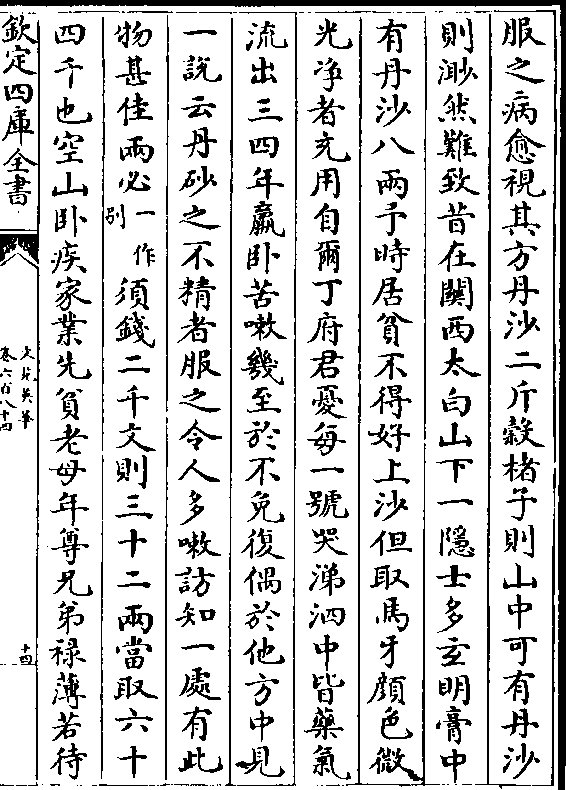 服之病愈視其方丹沙二斤榖楮子則山中可有丹沙
則渺然難致昔在關西太白山下一隱士多玄明膏中
有丹沙八兩予時居貧不得好上沙但取馬牙顔色微
光净者充用自爾丁府君憂每一號哭涕泗中皆藥氣
流出三四年羸卧苦嗽幾至於不免復偶於他方中見
一說云丹砂之不精者服之令人多嗽訪知一處有此
物甚佳兩必一作别須錢二千文則三十二兩當取六十
四千也空山卧疾家業先貧老母年尊兄弟禄薄若待
欽定四庫全書
文苑英華
卷六百八十四
十四